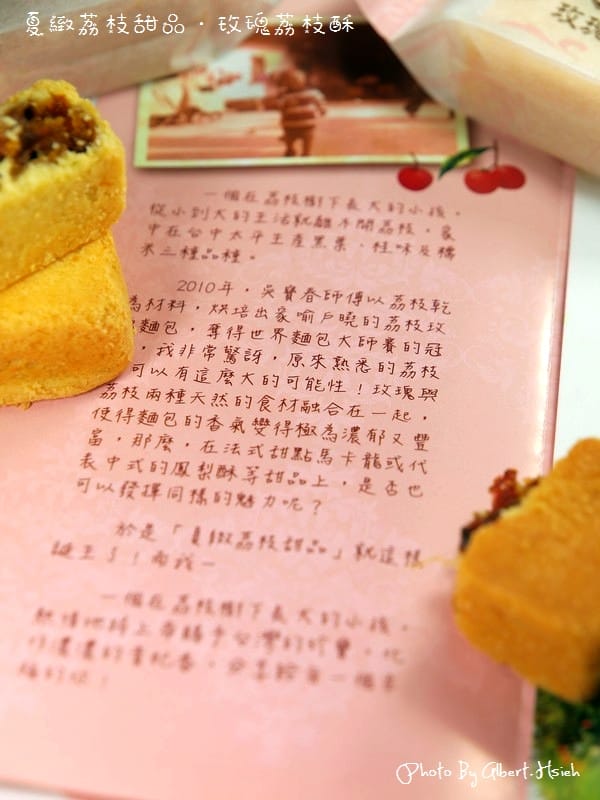 夏緻荔枝甜品．玫瑰荔枝酥
玫瑰
一個在荔枝樹下長大的小孩，
從小到大的生活就離不開荔枝，家
中在台中太平生產黑葉、桂味及糯
米三種品種。
2010年，吳寶春師傅以荔枝乾
為材料，烘培出家喻戶曉的荔枝玫
麵包，奪得世界麵包大師賽的冠
，我非常驚訝，原來熟悉的荔枝
可以有這麼大的可能性！玫瑰與
荔枝兩種天然的食材融合在一起，
使得麵包的香氣變得極為濃郁又豐
富，那麼，在法式甜點馬卡龍或代
表中式的鳳梨酥等甜品上，是否也
可以發揮同樣的魅力呢？
於是「夏緻荔枝甜品」就這樣
誕生了！而我—
一個在荔枝樹下長大的小孩，
熱情地將上帝賜予台灣的珍寶，化
作濃濃的
Photo By Albert.Hsieh